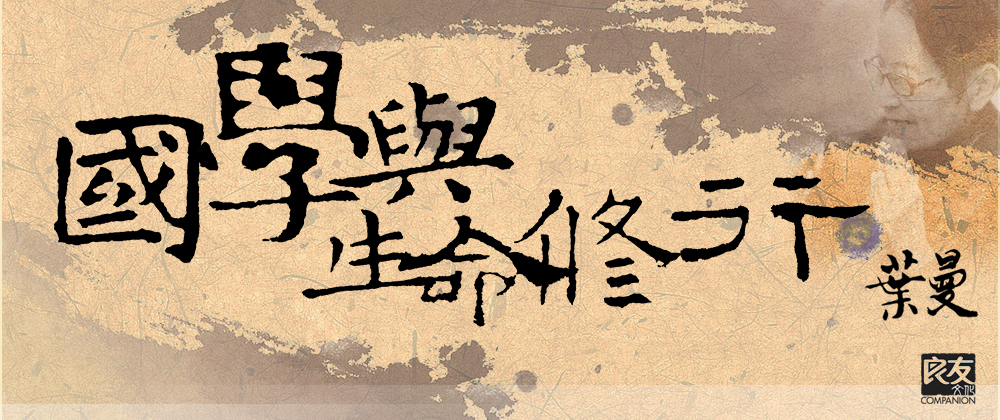 國學與
生命修行
葉曼
良友
文化
COMPANION